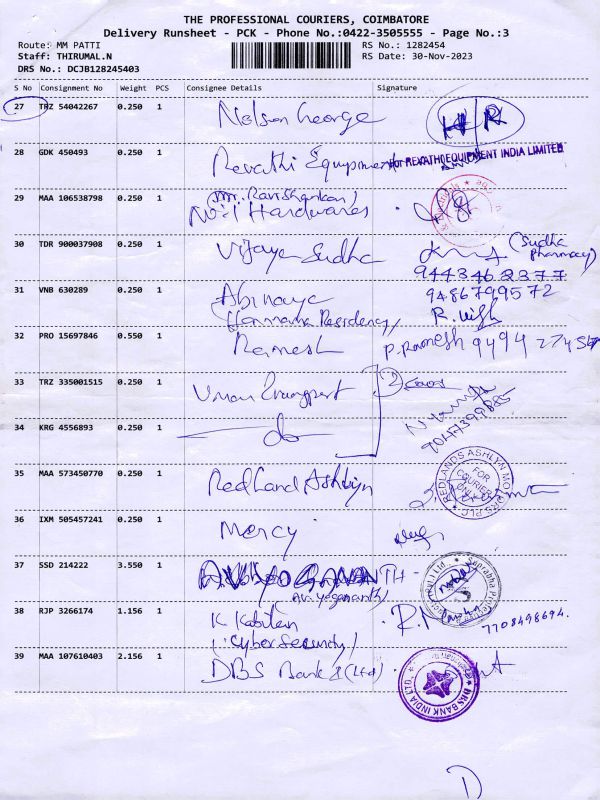 THE PROFESSIONAL COURIERS, COIMBATORE
Delivery Runsheet - PCK - Phone No.:0422-3505555 - Page No.:3
Route: MM PATTI
RS No.: 1282454
Staff: THIRUMAL.N
RS Date: 30-Nov-2023
DRS No.: DCJB128245403
S No Consignment No Weight PCS Consignee Details Signature
27 TRZ 54042267 0.250 1 Nelson George
28 GDK 450493 0.250 1 Revathi Equipment FOR REVATHI EQUIPMENT INDIA LIMITED
29 MAA 106538798 0.250 1 (Mr. Ravishankar)
No:1 Hardwares
30 TDR 900037908 0.250 1 Vijaya Sudha (Sudha Pharmacy)
9443462377
31 VNB 630289 0.250 1 Abinaya 9486799572
(Hannama Residency) R.
32 PRO 15697846 0.550 1 Ramesh P. Ramesh 9494 274567
33 TRZ 335001515 0.250 1 Uman Transport 2 Covers
34 KRG 4556893 0.250 1 do 9047399885
35 MAA 573450770 0.250 1 Redland Ashlyn REDLANDS ASHLYN MOTORS PLC FOR COURIER ONLY
36 IXM 505457241 0.250 1 Mercy
37 SSD 214222 3.550 1
38 RJP 3266174 1.156 1 K Kabilan 7708498694.
(Cyber Security)
39 MAA 107610403 2.156 1 DBS Bank (Ltd) DBS BANK INDIA LTD.
D